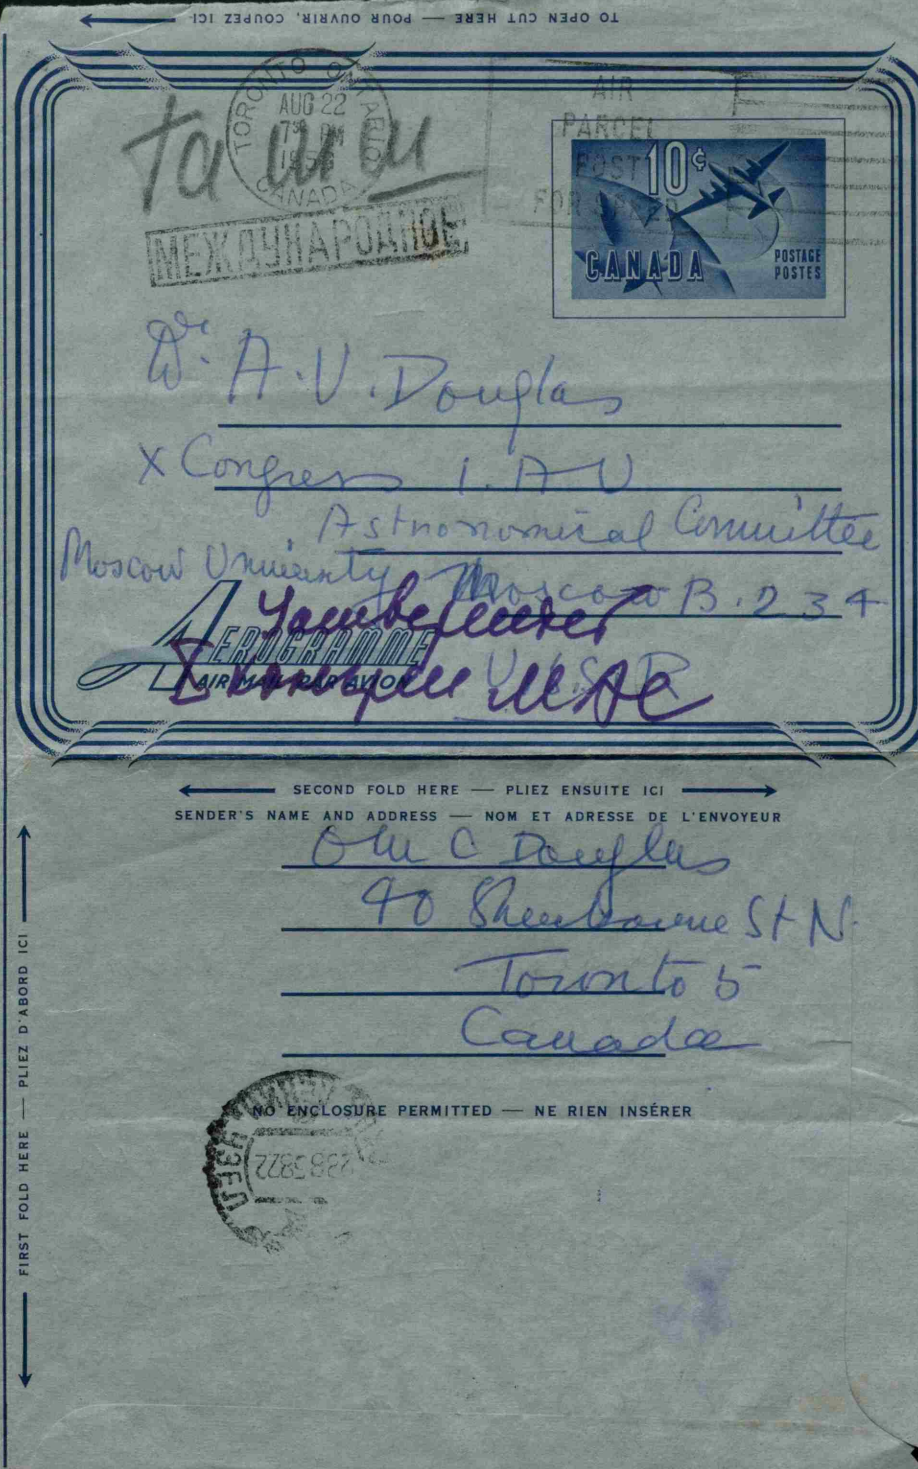 TO OPEN CUT HERE — POUR OUVRIR, COUPEZ ICI
TORONTO ONTARIO
AUG 22
CANADA
AIR
PARCEL
POST
FOR SPEED
10¢
CANADA
POSTAGE
POSTES
МЕЖДУНАРОДНОЕ
Dr. A. V. Douglas
X Congress I. A U
Astronomical Committee
Moscow University Moscow B. 234
U.S.S.R
AEROGRAMME
AIR MAIL PAR AVION
Университет
МАС
SECOND FOLD HERE — PLIEZ ENSUITE ICI
SENDER'S NAME AND ADDRESS — NOM ET ADRESSE DE L'ENVOYEUR
C Douglas
40 Sherbourne St N.
Toronto 5
Canada
NO ENCLOSURE PERMITTED — NE RIEN INSÉRER
FIRST FOLD HERE — PLIEZ D'ABORD ICI